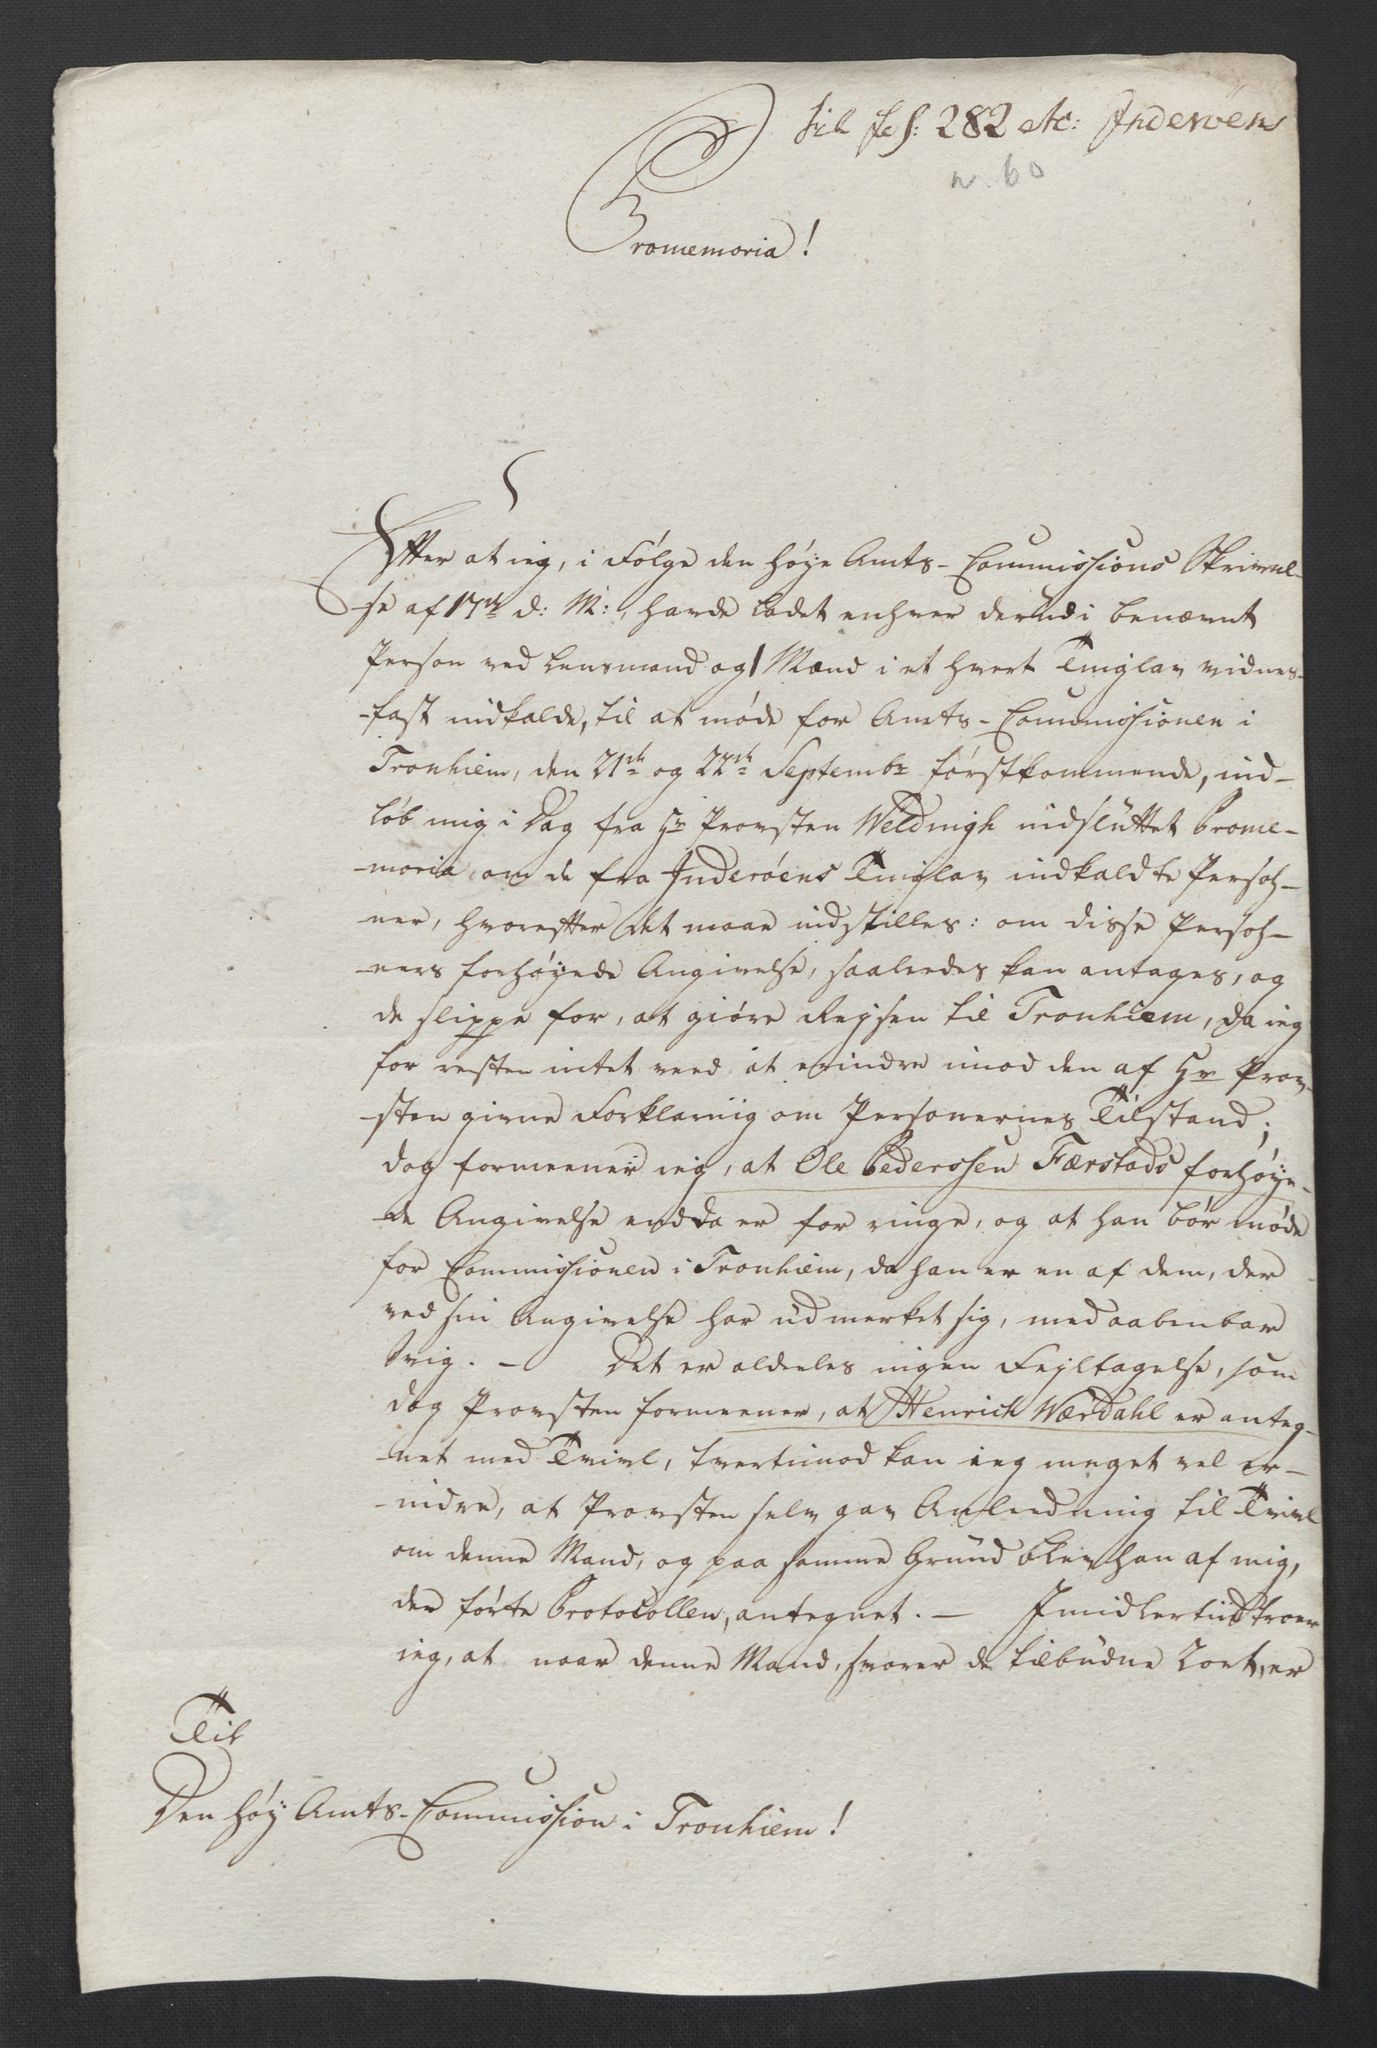 til fol: 282 etc: Inderøens
n. 60
Promemoria!
Efter at ieg, i Følge den høye Amts-Commissions Skrivel-
-se af 17de d: M:, havde ladet enhver derudi benævnt
Person ved Lensmand og 1 Mand i et hvert Tinglav vidnes-
-fast indkalde, til at møde for Amts-Commissionen i
Tronhiem, den 21de og 22de Septembr førstkommende, ind-
løb mig i Dag fra Hr Provsten Weldingh indsluttet Prome-
-moria, om de fra Inderøens Tinglav indkaldte Persoh-
ner, hvorefter det maae indstilles: om disse Persoh-
-ners forhøyede Angivelse, saaleedes kan antages, og
de slippe for, at giøre Reysen til Tronhiem, da ieg
for resten intet veed at erindre imod den af Hr Prov-
-sten givne Forklaring om Personernes Tilstand;
dog formeener ieg, at Ole Pederssen Færstads forhøye-
-de Angivelse endda er for ringe, og at han bør møde
for Commissionen i Tronhiem, da han er en af dem, der
ved sin Angivelse har udmerket sig, med aabenbar
Svig. - Det er aldeeles ingen Fejltagelse, som
dog Provsten formeener, at Henrich Wærdahl er anteg-
-net med Tvivl, tvertimod kan ieg meget vel er-
-indre, at Provsten selv gav Anleedning til Tvivl
om denne Mand, og paa samme Grund blev han af mig,
der førte Protocollen, antegnet. - Imidlertiid troer
ieg, at naar denne Mand, svarer de tilbudne 2 ort, er
Til
Den høy Amts-Commission i Tronhiem!